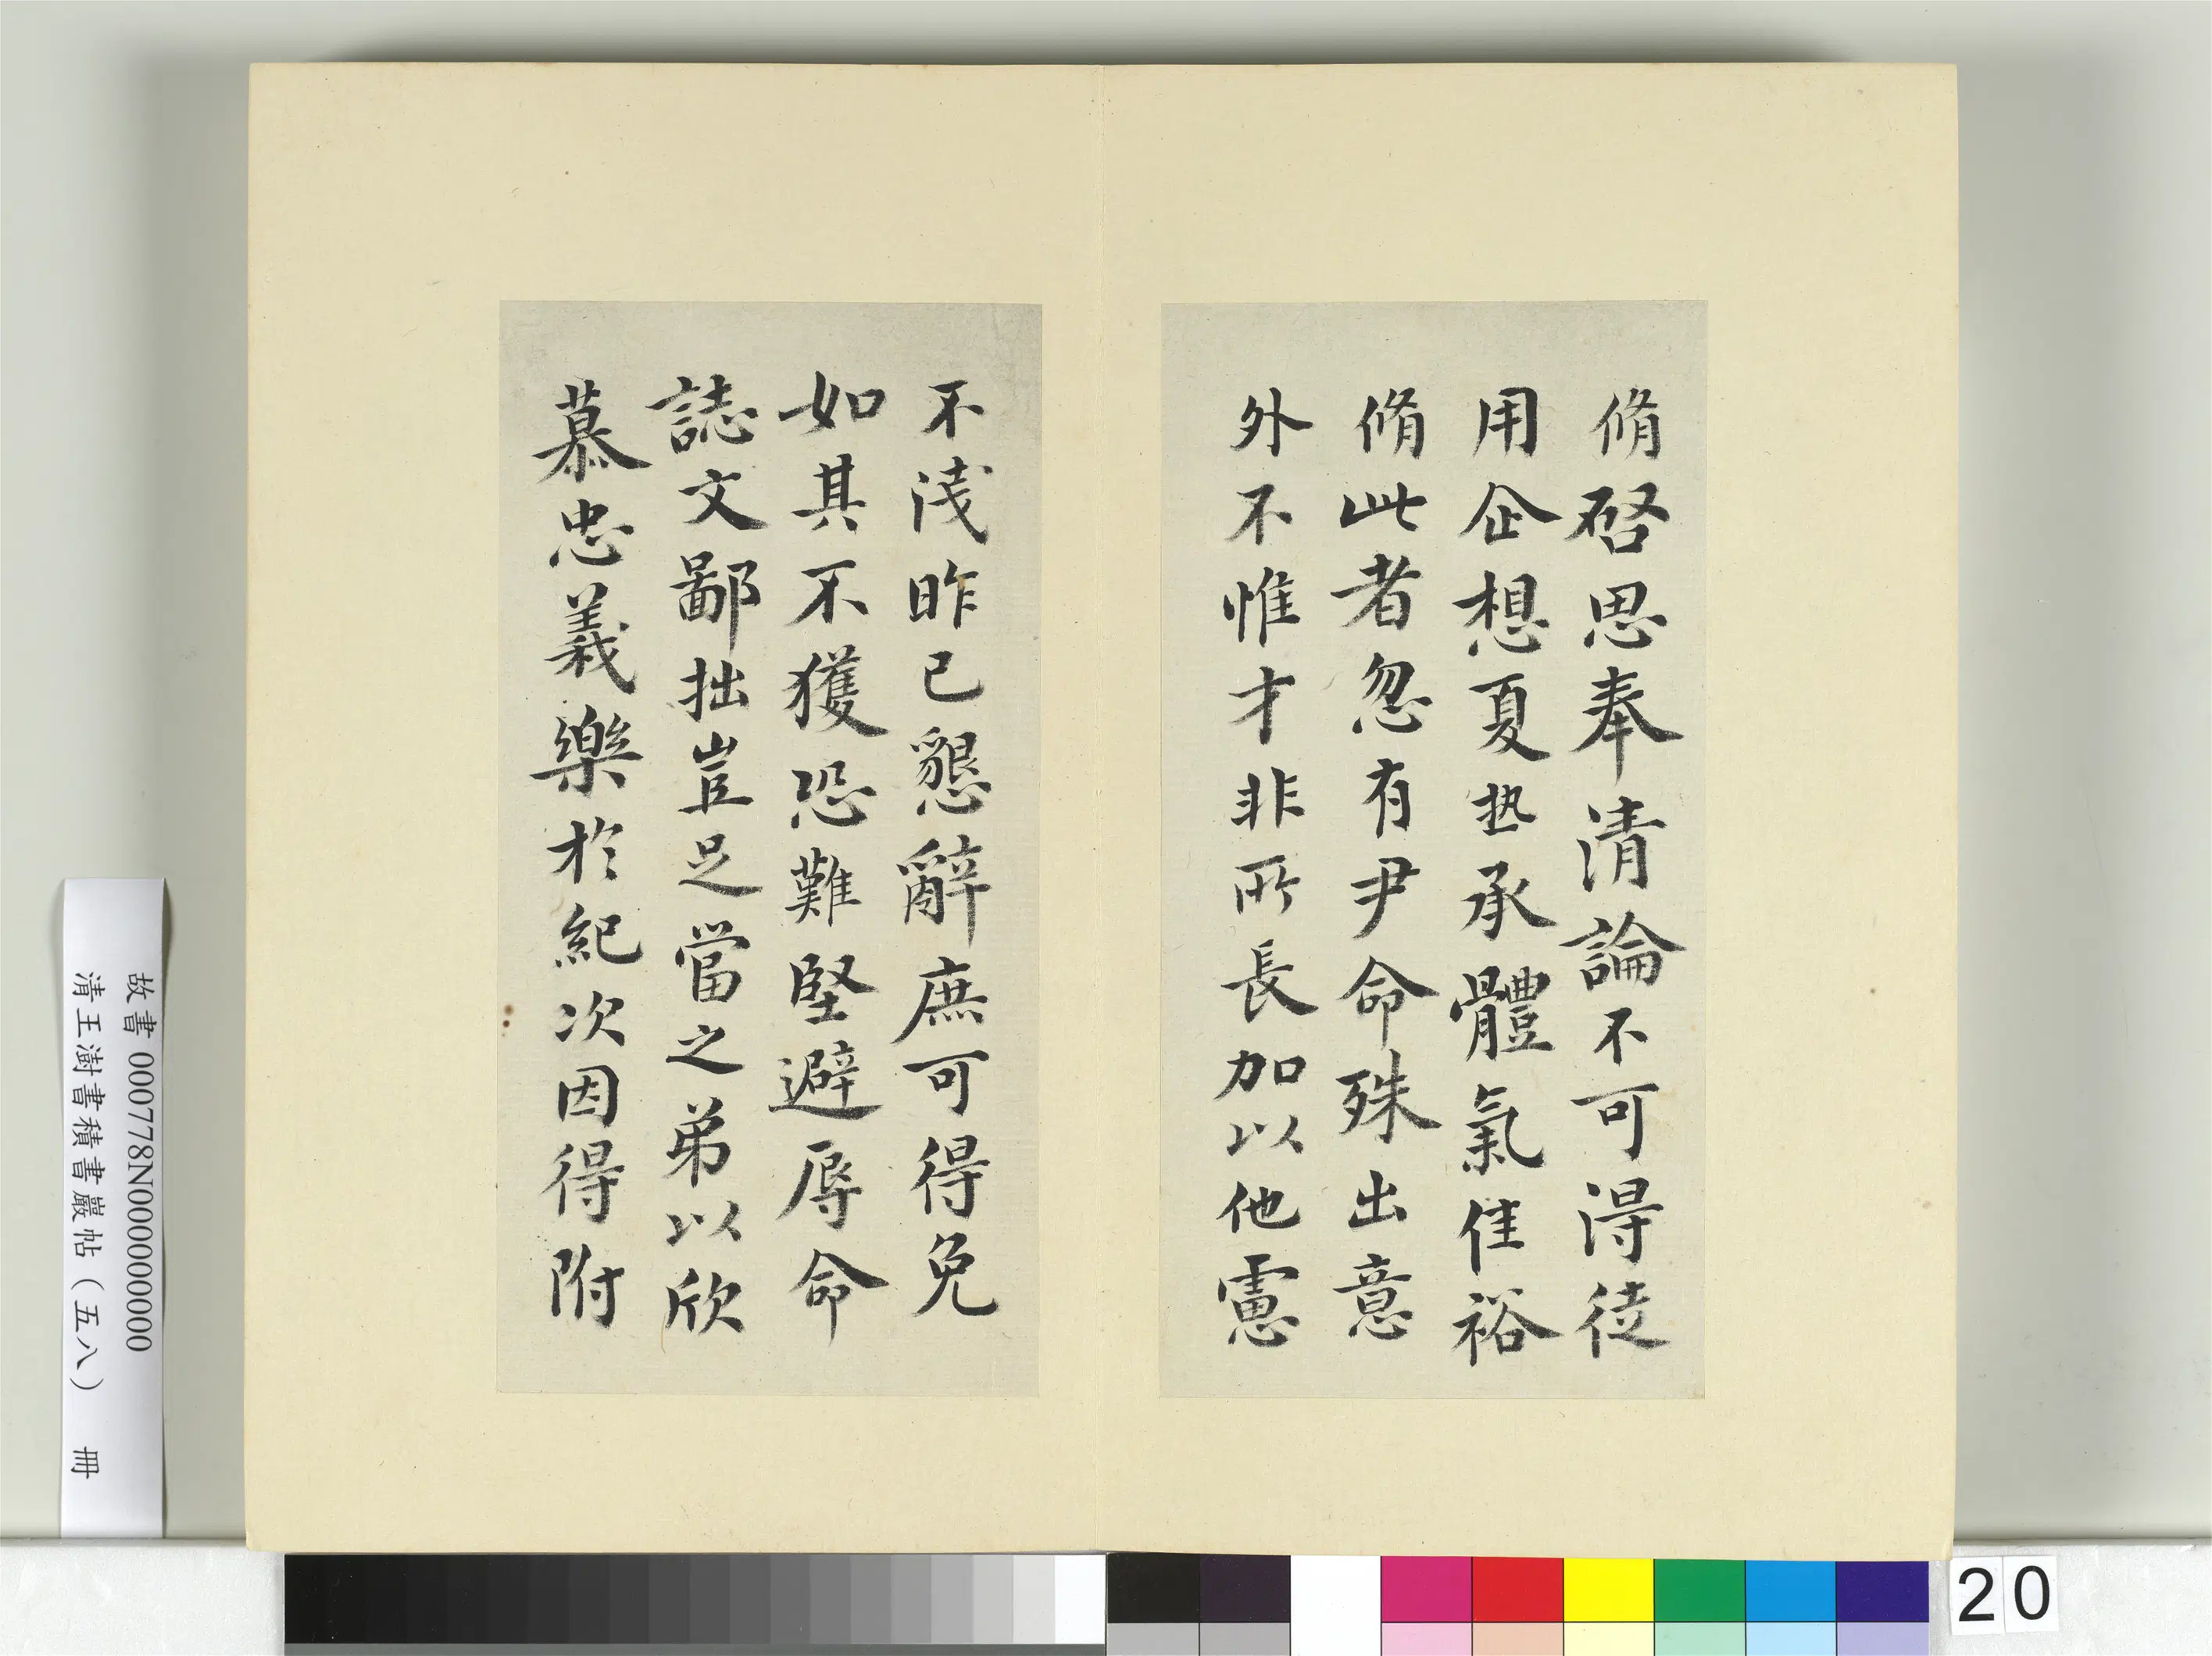 脩啓思奉清論不可得徒
用企想夏热承體氣佳裕
脩此者忽有尹命殊出意
外不惟才非所長加以他慮
不淺昨已懇辭庶可得免
如其不獲恐難堅避辱命
誌文鄙拙豈足當之弟以欣
慕忠義樂於紀次因得附
故書 000778N000000000
清王澍書積書巖帖(五八) 冊
20